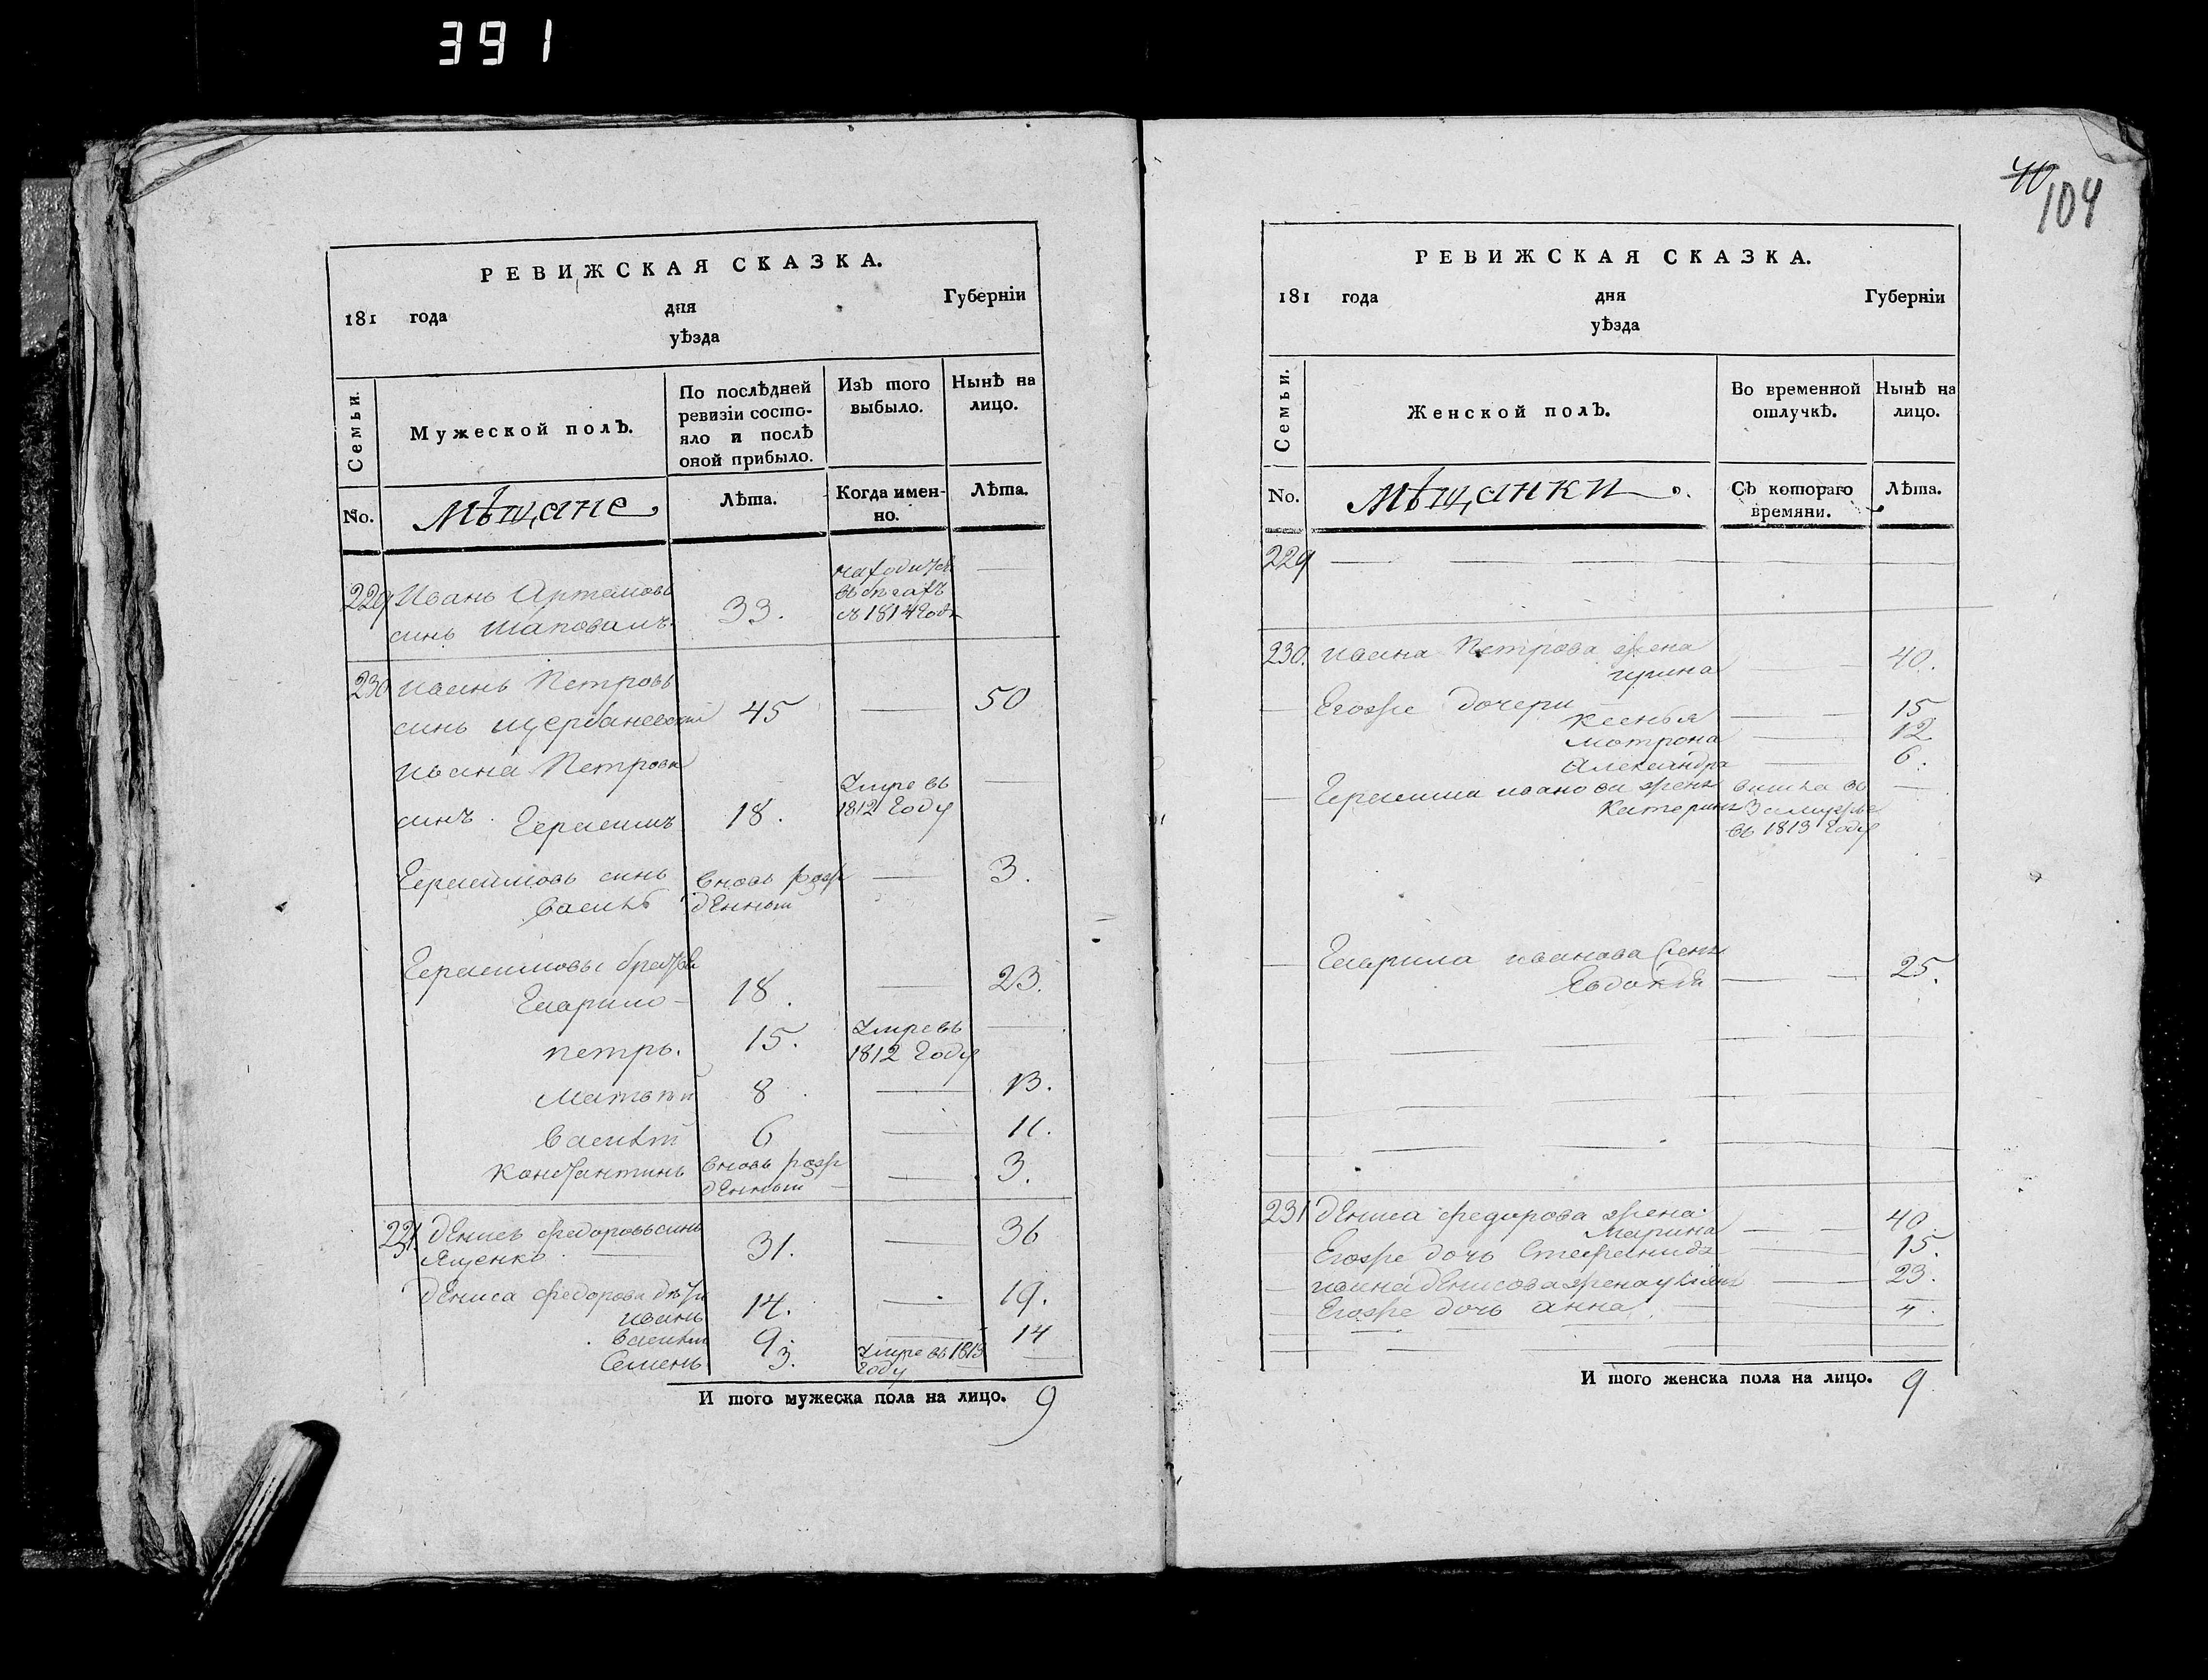 391
РЕВИЖСКАЯ СКАЗКА.
181 года дня Губерніи
уѣзда
Семьи.
Мужеской полъ.
По послѣдней ревизіи состо-
яло и послѣ оной прибыло.
Изъ того выбыло.
Нынѣ на лицо.
No.
Мѣщане
Лѣта.
Когда имен-
но.
Лѣта.
229 Иванъ Артемовъ
синъ Шаповалъ. 33.
находится
въ
съ 1814 Года —
230 Иванъ Петровъ
синъ Щербаневский 45 — 50
Ивана Петрова
синъ. Герасимъ 18. Умре въ
1812 Году —
Герасимовъ синъ вновь рож — 3.
Василь денный
Герасимовы братья
Гаврило — 18. — 23.
петръ. 15. Умре въ
1812 Году —
Матвѣй 8 — 13.
Василий 6 — 11.
Константинъ вновь рож
денный — 3.
231. Денисъ Федоровъ синъ
Яценко 31. — 36
Дениса Федорова дѣти
иванъ 14. — 19.
Василий 9. — 14
Семенъ 3. Умре въ 1813
Году —
И того мужеска пола на лицо. 9
40
104
РЕВИЖСКАЯ СКАЗКА.
181 года дня Губерніи
уѣзда
Семьи.
Женской полъ.
Во временной
отлучкѣ.
Нынѣ на
лицо.
No.
Мѣщанки.
Съ котораго
времяни.
Лѣта.
229 — — — —
230. Ивана Петрова жена
ирина — 40.
Егоже дочери
Ксенья — 15
Мотрона — 12
Александра — 6.
Герасима иванова жена вишла въ —
Катерина Замужье
въ 1813 Году
Гаврила иванова жена
Евдокия — 25.
231 Дениса Федорова жена
Марина — 40.
Егоже дочь Стефанида — 15.
ивана Денисова жена улияна — 23.
Егоже дочь анна. —
И того женска пола на лицо. 9